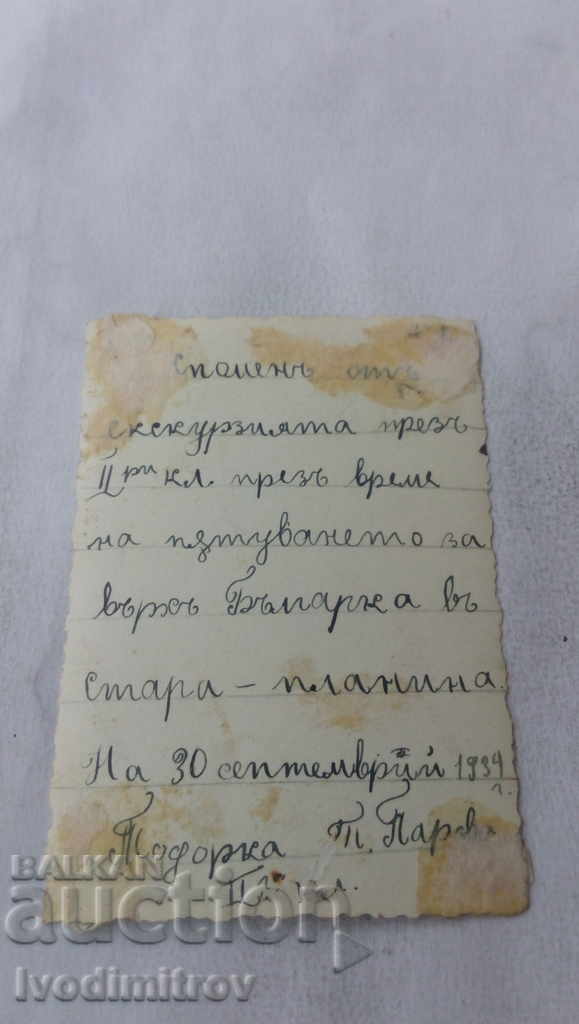 Споменъ отъ
екскурзията презъ
II ри кл. презъ време
на пѫтуването за
върхъ Българка въ
Стара - планина.
На 30 септемврий 1934
г.
Тодорка Т.
II
BALKAN
auction
Ivodimitrov